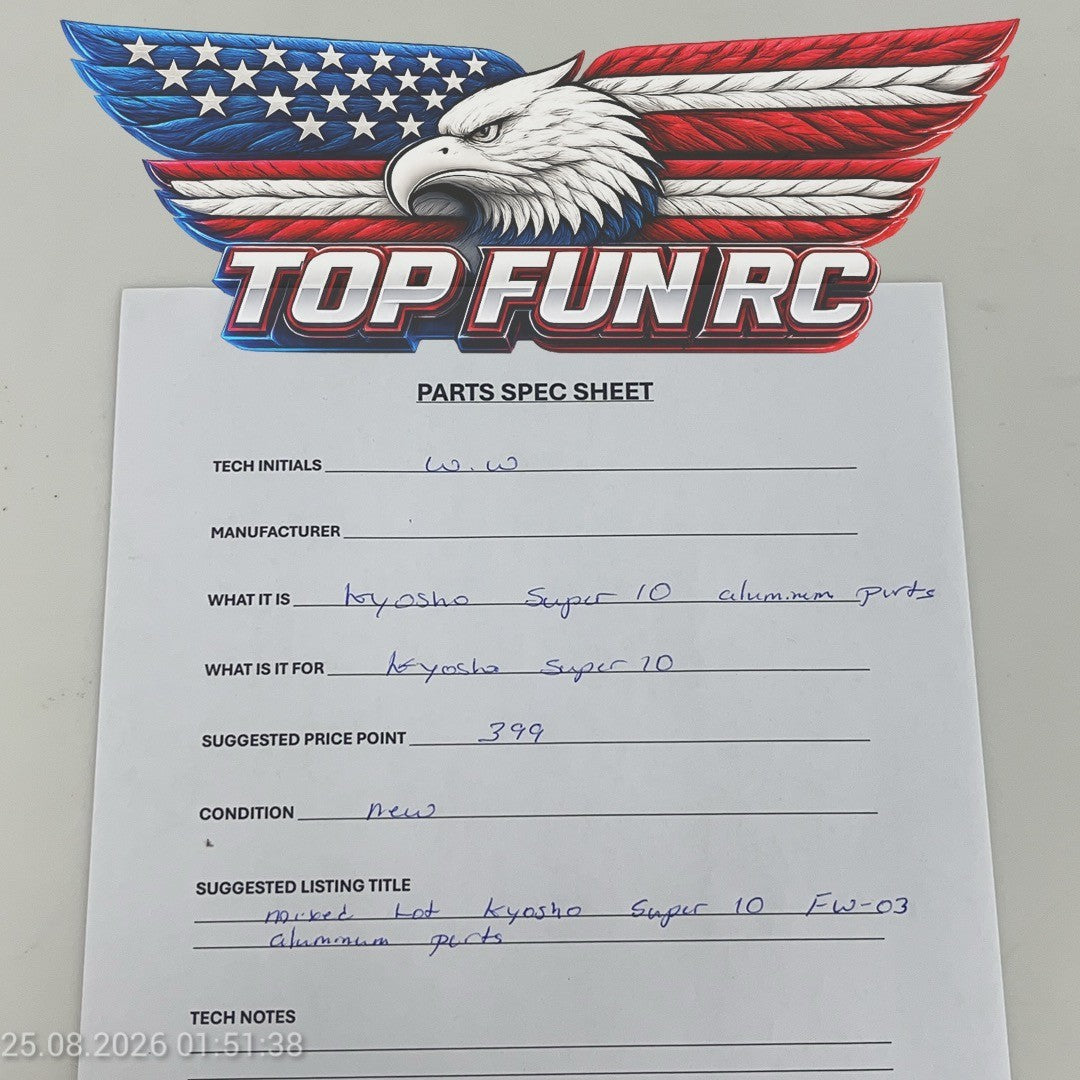 TOP FUN RC
PARTS SPEC SHEET
TECH INITIALS W.W
MANUFACTURER
WHAT IT IS Kyosho Super 10 aluminum parts
WHAT IS IT FOR Kyosho Super 10
SUGGESTED PRICE POINT 399
CONDITION new
SUGGESTED LISTING TITLE
mixed Lot Kyosho Super 10 FW-03
aluminum parts
TECH NOTES
25.08.2026 01:51:38